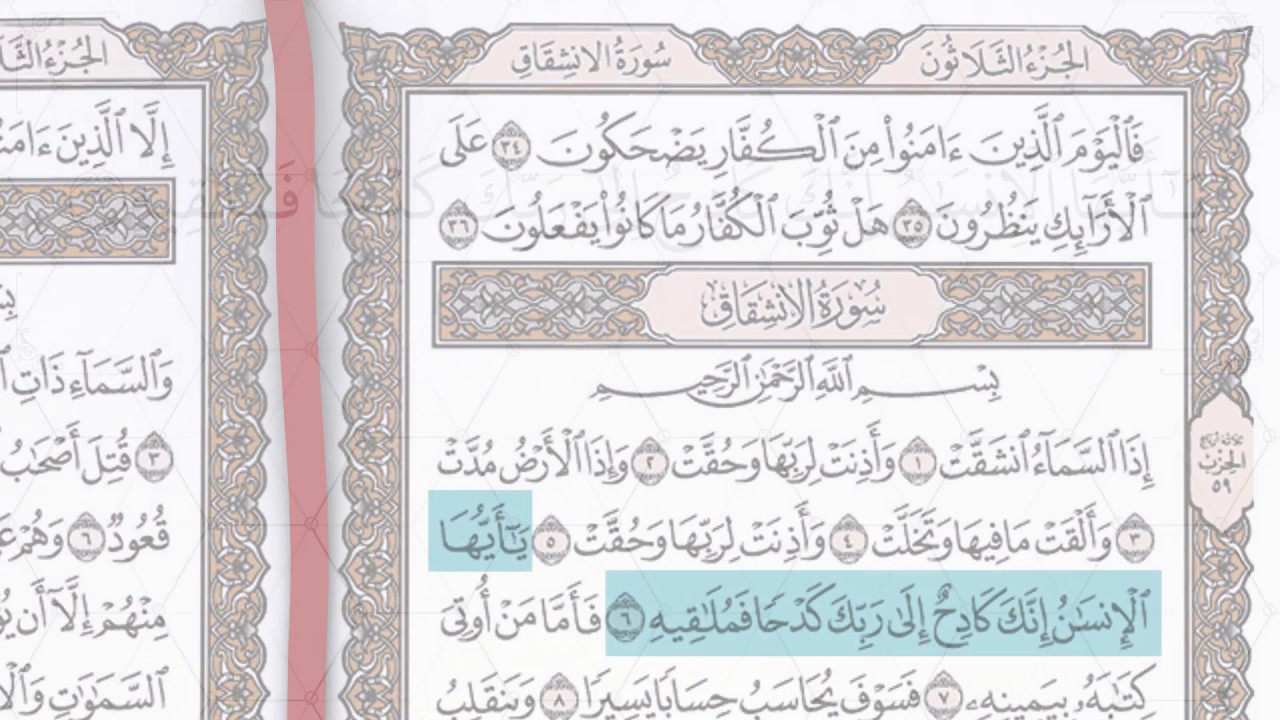 الجُزْءُ الثَّلَاثُونَ
سُورَةُ الانشِقَاقِ
فَٱلْيَوْمَ ٱلَّذِينَ ءَامَنُوا۟ مِنَ ٱلْكُفَّارِ يَضْحَكُونَ ٣٤ عَلَى
ٱلْأَرَآئِكِ يَنظُرُونَ ٣٥ هَلْ ثُوِّبَ ٱلْكُفَّارُ مَا كَانُوا۟ يَفْعَلُونَ ٣٦
سُورَةُ الانشِقَاقِ
بِسْمِ ٱللَّهِ ٱلرَّحْمَٰنِ ٱلرَّحِيمِ
إِذَا ٱلسَّمَآءُ ٱنشَقَّتْ ١ وَأَذِنَتْ لِرَبِّهَا وَحُقَّتْ ٢ وَإِذَا ٱلْأَرْضُ مُدَّتْ
٣ وَأَلْقَتْ مَا فِيهَا وَتَخَلَّتْ ٤ وَأَذِنَتْ لِرَبِّهَا وَحُقَّتْ ٥ يَٰٓأَيُّهَا
ٱلْإِنسَٰنُ إِنَّكَ كَادِحٌ إِلَىٰ رَبِّكَ كَدْحًا فَمُلَٰقِيهِ ٦ فَأَمَّا مَنْ أُوتِيَ
كِتَٰبَهُۥ بِيَمِينِهِۦ ٧ فَسَوْفَ يُحَاسَبُ حِسَابًا يَسِيرًا ٨ وَيَنقَلِبُ
ثلاثة أرباع
الحِزْب
٥٩
إِلَّا ٱلَّذِينَ ءَامَنُ
وَٱلسَّمَآءِ ذَاتِ
٣ قُتِلَ أَصْحَٰبُ
قُعُودٌ ٦ وَهُمْ
مِنْهُمْ إِلَّآ أَن
ٱلسَّمَٰوَٰتِ